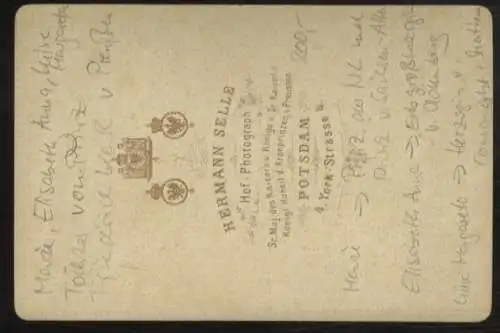 Marie, Elisabeth Anna, Luise Margarete
Töchter von Prinz
Friedrich Karl v Preußen
HERMANN SELLE
Hof Photograph
Sr. Maj. des Kaisers u. Königs u. Ihr. Kaiserl. u.
Königl. Hoheit d. Kronprinzen v. Preussen
POTSDAM
4. York-Strasse 4.
200,-
Marie → Prinz der NL und
Prinz v Sachsen-Alt
Elisabeth Anna → Erbgroßherzog
v. Oldenburg
Luise Margarete → Herzog v.